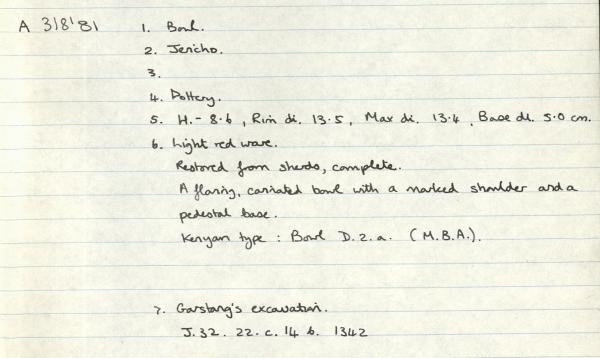 A 318'81 1. Bowl.
2. Jericho.
3.
4. Pottery.
5. H.- 8.6, Rim di. 13.5, Max di. 13.4, Base di. 5.0 cm.
6. Light red ware.
Restored from sherds, complete.
A flaring, carinated bowl with a marked shoulder and a
pedestal base.
Kenyon type : Bowl D.2.a. (M.B.A.).
7. Garstang's excavation.
J.32. 22.c. 14 b. 1342